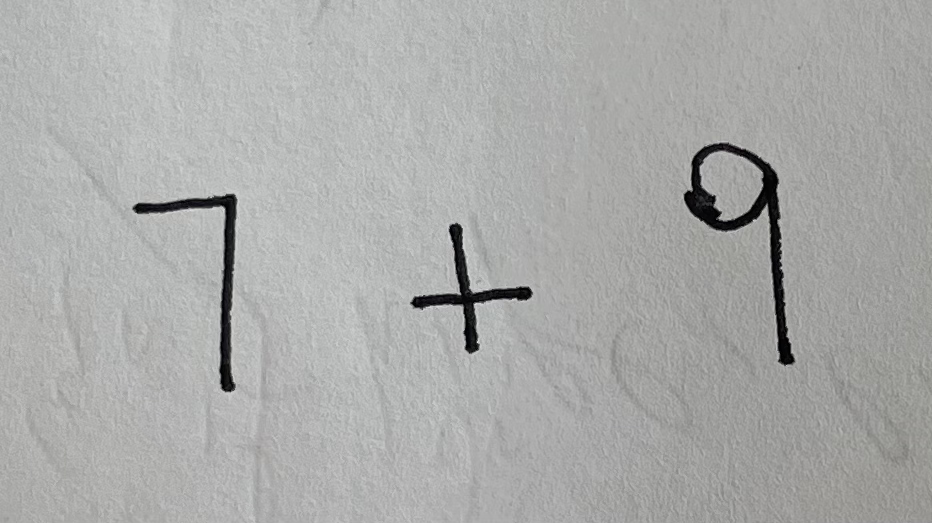 7 + 9